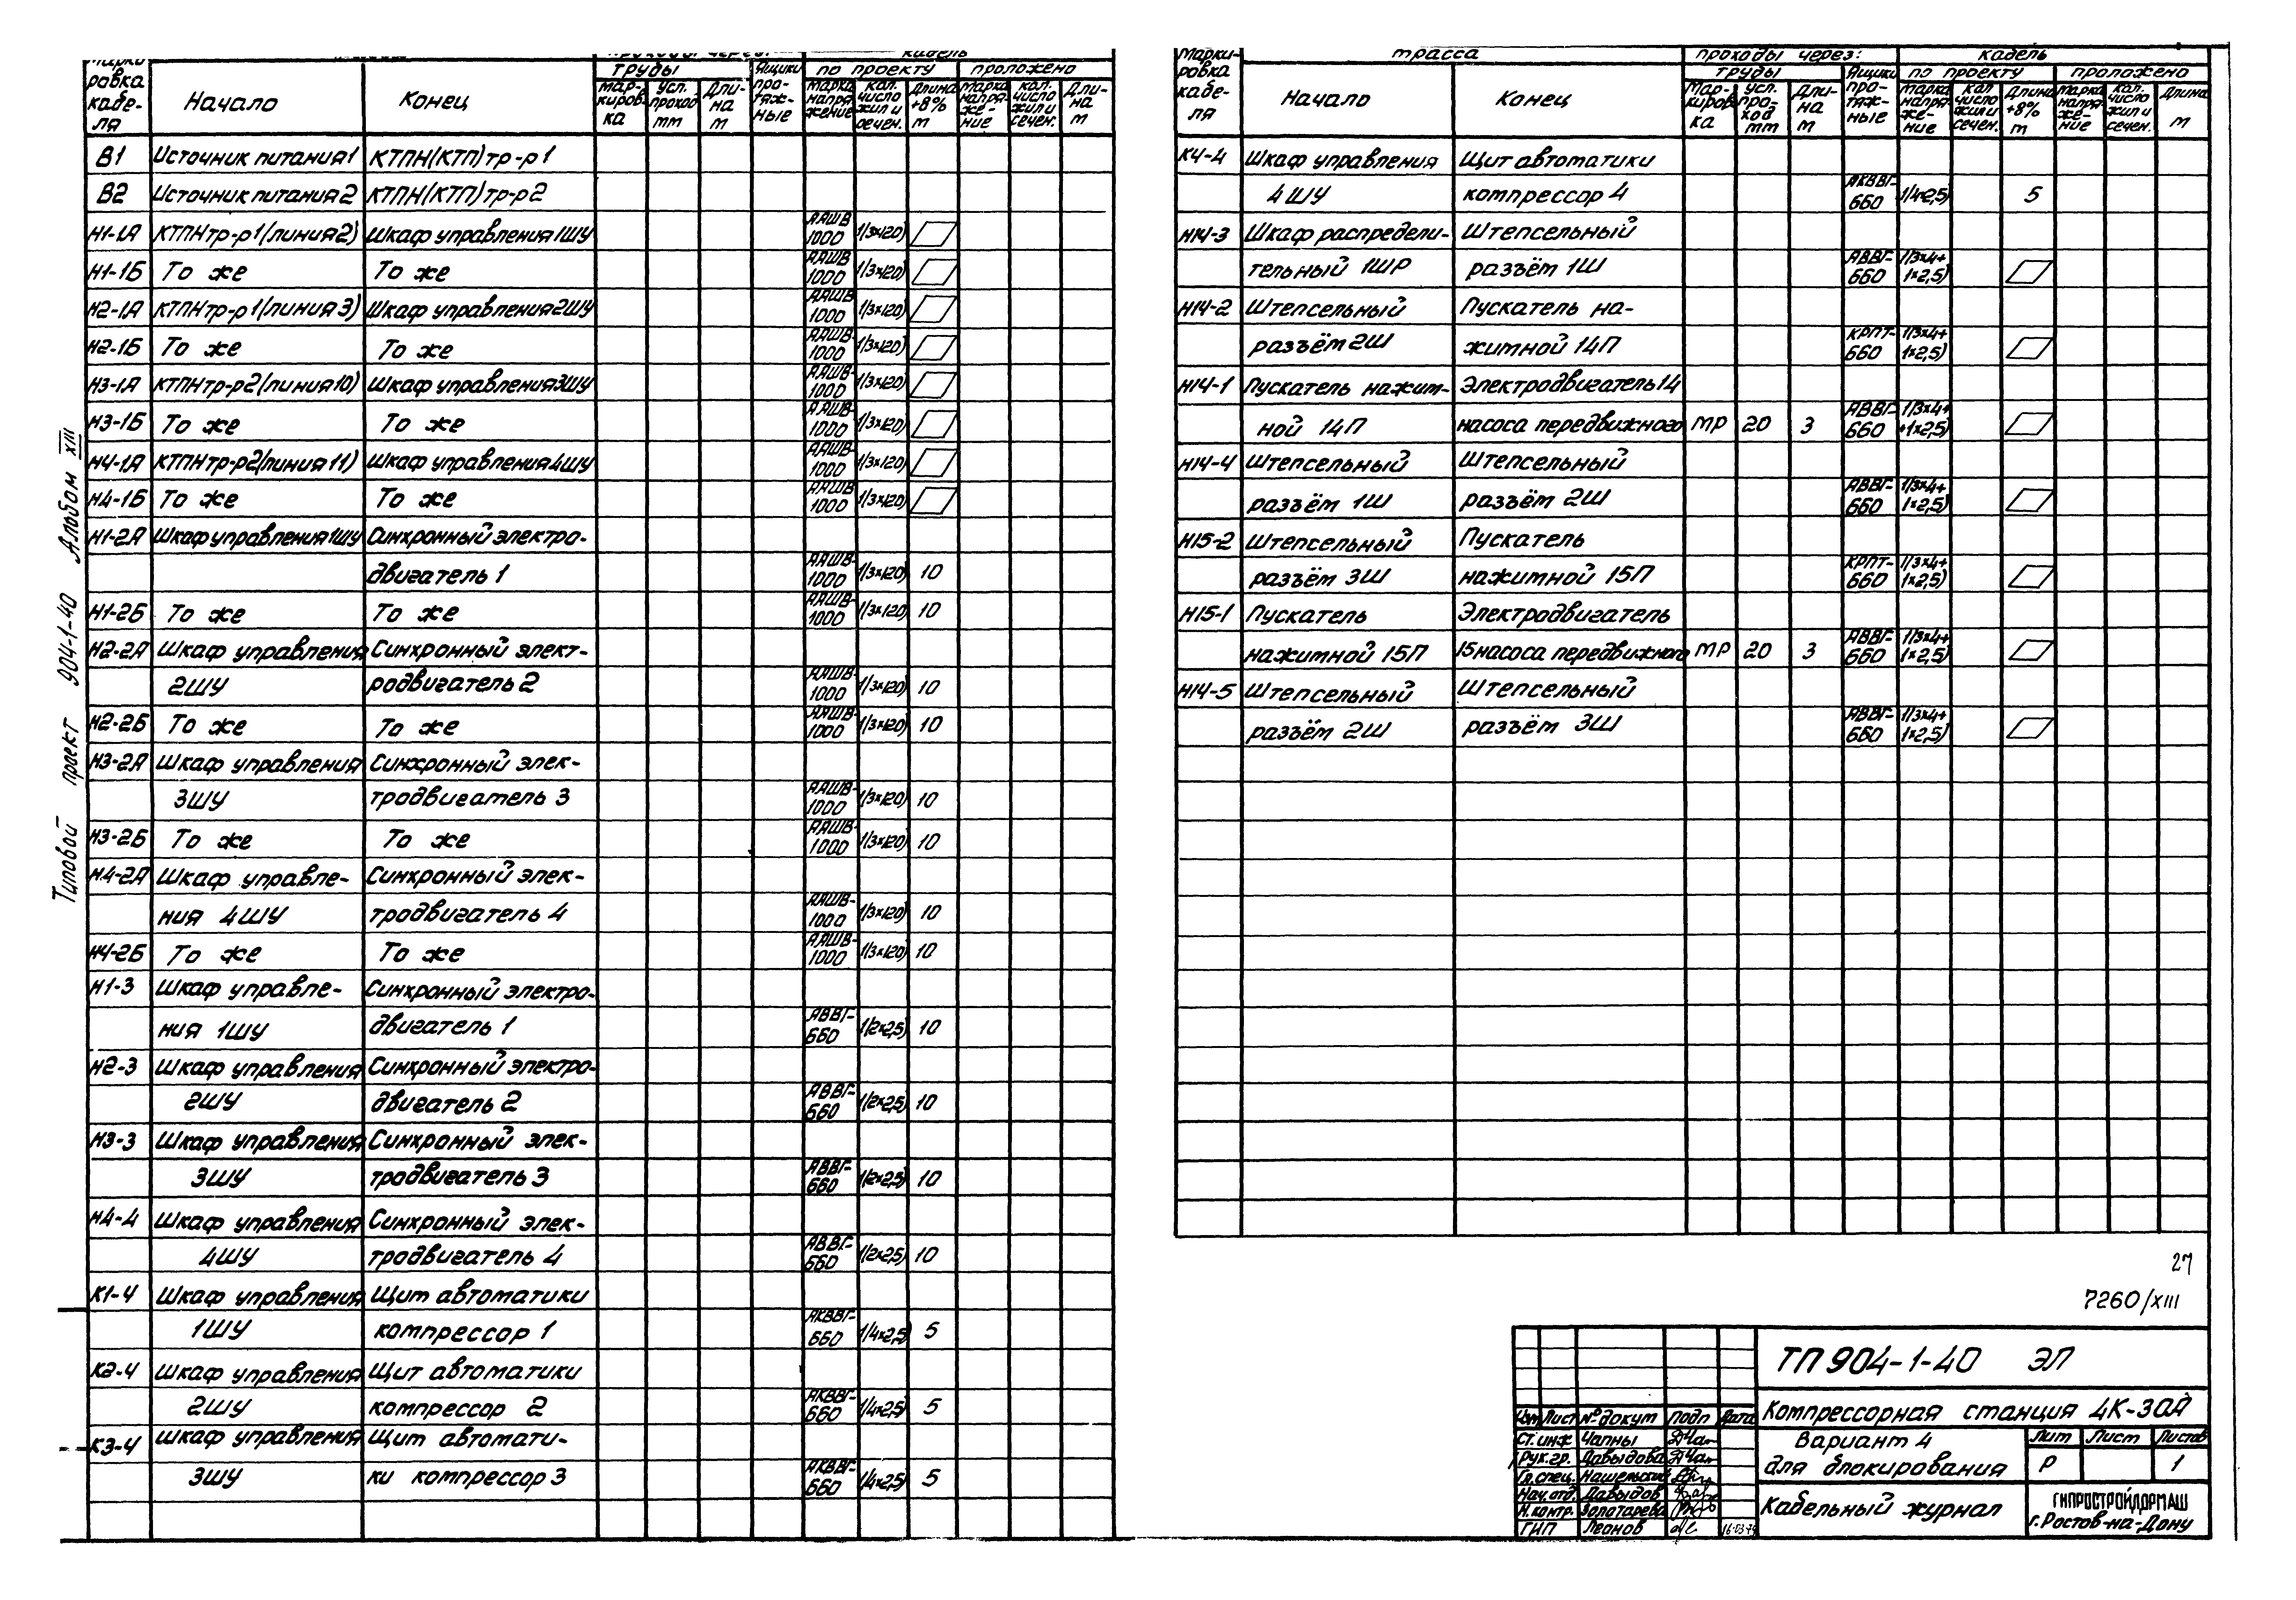 Типовой проект 904-1-40 Альбом XIII
Марки- ровка кабе- ля
Начало
Конец
проходы через:
трубы
Мар- киров ка
Усл. проход мм
Дли- на м
Ящики про- тяж- ные
кабель
по проекту
проложено
Марка напря жение
Кол. число жил и сечен.
Длина +8% м
Марка напря- же- ние
Кол. число жил и сечен.
Дли- на м
В1 Источник питания 1 КТПН(КТП) тр-р 1
В2 Источник питания 2 КТПН(КТП) тр-р 2
Н1-1А КТПН тр-р 1 (линия 2) Шкаф управления 1ШУ ААШВ 1000 1/3х120)
Н1-1Б То же То же ААШВ 1000 1/3х120)
Н2-1А КТПН тр-р 1 (линия 3) Шкаф управления 2ШУ ААШВ 1000 1/3х120)
Н2-1Б То же То же ААШВ- 1000 1/3х120)
Н3-1А КТПН тр-р2 (линия 10) Шкаф управления 3ШУ ААШВ- 1000 1/3х120)
Н3-1Б То же То же ААШВ- 1000 1/3х120)
Н4-1А КТПН тр-р2 (линия 11) Шкаф управления 4ШУ ААШВ 1000 1/3х120)
Н4-1Б То же То же ААШВ 1000 1/3х120)
Н1-2А Шкаф управления 1ШУ Синхронный электро-
двигатель 1 ААШВ- 1000 1/3х120) 10
Н1-2Б То же То же ААШВ- 1000 1/3х120 10
Н2-2А Шкаф управления Синхронный элект-
2ШУ родвигатель 2 ААШВ- 1000 1/3х120) 10
Н2-2Б То же То же ААШВ- 1000 1/3х120) 10
Н3-2А Шкаф управления Синхронный элек-
3ШУ тродвигатель 3 ААШВ- 1000 1/3х120) 10
Н3-2Б То же То же ААШВ- 1000 1/3х120) 10
Н4-2А Шкаф управле- Синхронный элек-
ния 4ШУ тродвигатель 4 ААШВ- 1000 1/3х120) 10
Н4-2Б То же То же ААШВ- 1000 1/3х120) 10
Н1-3 Шкаф управле- Синхронный электро-
ния 1ШУ двигатель 1 АВВГ- 660 1/2х2,5) 10
Н2-3 Шкаф управления Синхронный электро-
2ШУ двигатель 2 АВВГ- 660 1/2х2,5) 10
Н3-3 Шкаф управления Синхронный элек-
3ШУ тродвигатель 3 АВВГ- 660 1/2х2,5) 10
Н4-4 Шкаф управления Синхронный элек-
4ШУ тродвигатель 4 АВВГ- 660 1/2х2,5) 10
К1-4 Шкаф управления Щит автоматики
1ШУ компрессор 1 АКВВГ- 660 1/4х2,5) 5
К2-4 Шкаф управления Щит автоматики
2ШУ компрессор 2 АКВВГ- 660 1/4х2,5) 5
К3-4 Шкаф управления Щит автомати-
3ШУ ки компрессор 3 АКВВГ- 660 1/4х2,5) 5
Марки- ровка кабе- ля
трасса
Начало
Конец
проходы через:
трубы
Мар- киров ка
Усл. про- ход мм
Дли- на м
Ящики про- тяж- ные
кабель
по проекту
проложено
Марка напря же- ние
Кол число жил и сечен.
Длина +8% м
Марка напря- же- ние
Кол. число жил и сечен.
Длина м
К4-4 Шкаф управления Щит автоматики
4ШУ компрессор 4 АКВВГ- 660 1/4х2,5) 5
Н14-3 Шкаф распредели- Штепсельный
тельный 1ШР разъём 1Ш АВВГ- 660 1/3х4+ 1х2,5)
Н14-2 Штепсельный Пускатель на-
разъём 2Ш житной 14П КРПТ- 660 1/3х4+ 1х2,5)
Н14-1 Пускатель нажит- Электродвигатель 14
ной 14П насоса передвижного МР 20 3 АВВГ- 660 1/3х4+ +1х2,5)
Н14-4 Штепсельный Штепсельный
разъём 1Ш разъём 2Ш АВВГ- 660 1/3х4+ 1х2,5)
Н15-2 Штепсельный Пускатель
разъём 3Ш нажитной 15П КРПТ- 660 1/3х4+ 1х2,5)
Н15-1 Пускатель Электродвигатель
нажитной 15П 15 насоса передвижного МР 20 3 АВВГ- 660 1/3х4+ 1х2,5)
Н14-5 Штепсельный Штепсельный
разъём 2Ш разъём 3Ш АВВГ- 660 1/3х4+ 1х2,5)
27
7260/XIII
ТП 904-1-40 ЭЛ
Компрессорная станция 4К-30А
Изм Лист № докум Подп Дата
Ст. инж Чапны
Рук. гр. Давыдова
Гл. спец. Нашельский
Нач. отд. Давыдов
Н. контр. Золотарева
ГИП Леонов
Вариант 4
для блокирования
Лит Лист Листов
Р 1
Кабельный журнал
ГИПРОСТРОЙДОРМАШ
г. Ростов-на-Дону